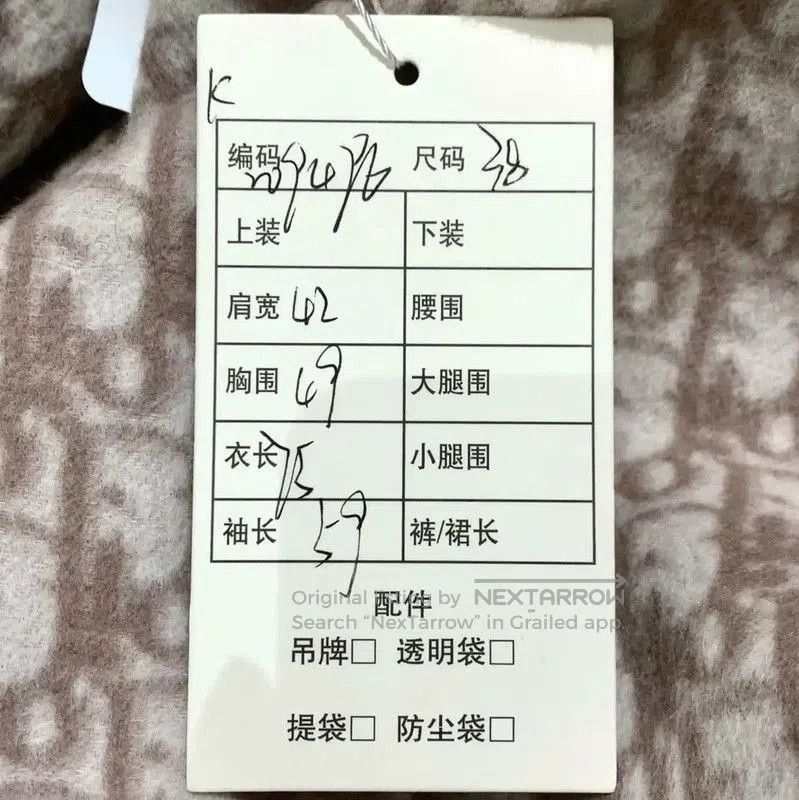 K
编码 209476 尺码 38
上装 下装
肩宽 42 腰围
胸围 49 大腿围
衣长 75 小腿围
袖长 59 裤/裙长
配件
Original listing by NEXTARROW
Search "NexTarrow" in Grailed app
吊牌□ 透明袋□
提袋□ 防尘袋□